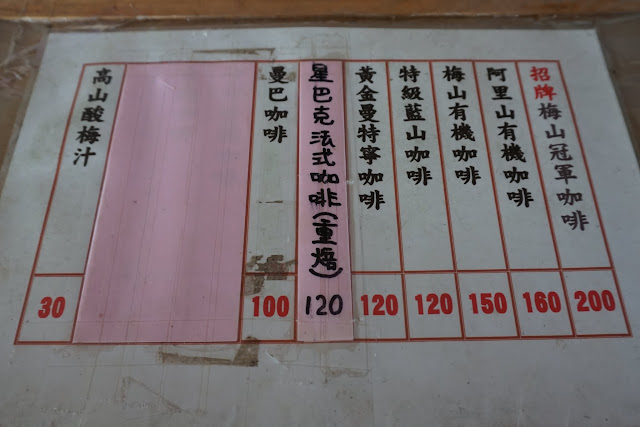 招牌梅山冠軍咖啡
200
阿里山有機咖啡
160
梅山有機咖啡
150
特級藍山咖啡
120
黃金曼特寧咖啡
120
星巴克法式咖啡(重焙)
120
曼巴咖啡
100
高山酸梅汁
30